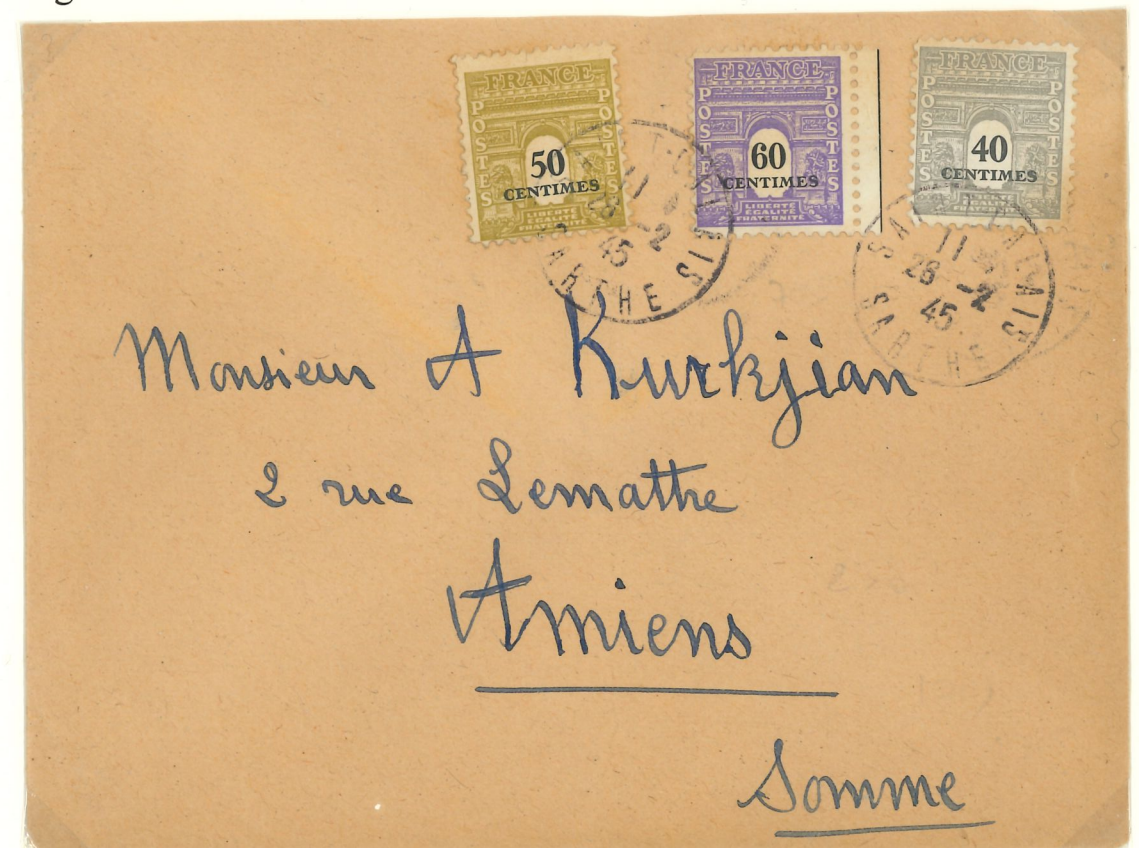 FRANCE
POSTES
POSTES
50
CENTIMES
LIBERTÉ
ÉGALITÉ
FRATERNITÉ
FRANCE
POSTES
POSTES
60
CENTIMES
LIBERTÉ
ÉGALITÉ
FRATERNITÉ
FRANCE
POSTES
POSTES
40
CENTIMES
ÉGALITÉ
FRATERNITÉ
11
26 -2
45
SARTHE
11
26 -2
45
SARTHE
Monsieur A Kurkjian
2 rue Lemathe
Amiens
Somme